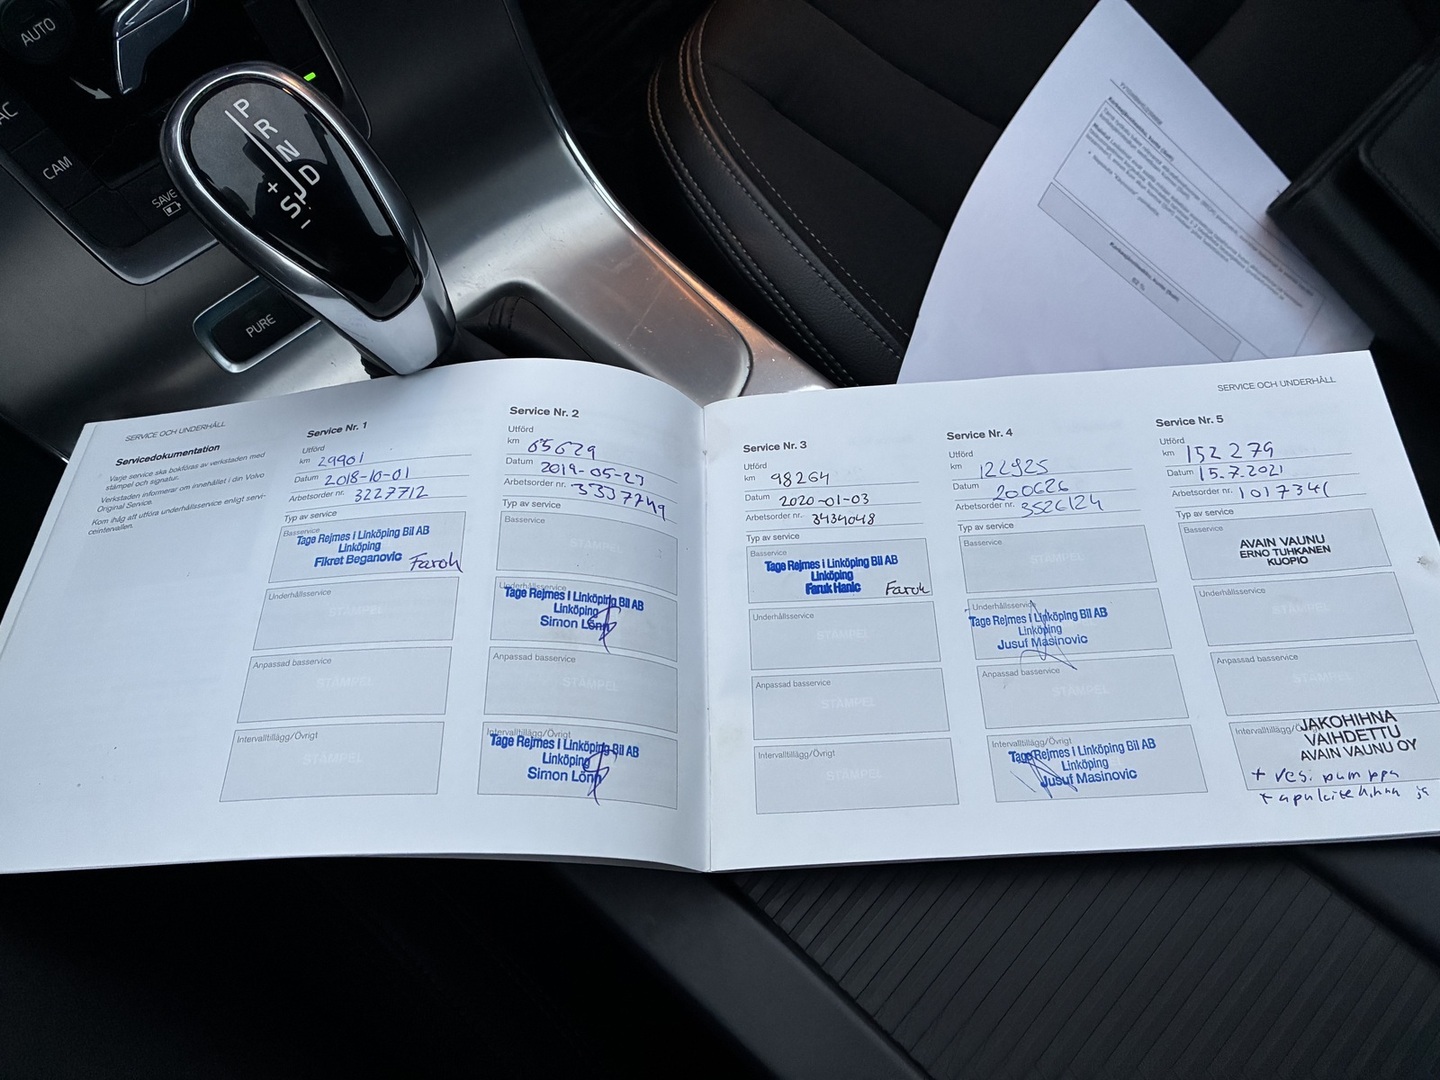 AUTO
AC
CAM
SAVE
P
R
N
D
+
S
-
PURE
SERVICE OCH UNDERHÅLL
Servicedokumentation
Varje service ska bokföras av verkstaden med
stämpel och signatur.
Verkstaden informerar om innehållet i din Volvo
Original Service.
Kom ihåg att utföra underhållsservice enligt servi-
ceintervallen.
Service Nr. 1
Utförd
km 29901
Datum 2018-10-01
Arbetsorder nr. 3227712
Typ av service
Basservice
Tage Rejmes i Linköping Bil AB
Linköping
Fikret Beganovic Faruk
Underhållsservice
STÄMPEL
Anpassad basservice
STÄMPEL
Intervalltillägg/Övrigt
STÄMPEL
Service Nr. 2
Utförd
km 65629
Datum 2019-05-27
Arbetsorder nr. 3337749
Typ av service
Basservice
STÄMPEL
Underhållsservice
Tage Rejmes i Linköping Bil AB
Linköping
Simon Lönn
Anpassad basservice
STÄMPEL
Intervalltillägg/Övrigt
Tage Rejmes i Linköping Bil AB
Linköping
Simon Lönn
Service Nr. 3
Utförd
km 98264
Datum 2020-01-03
Arbetsorder nr. 3434048
Typ av service
Basservice
Tage Rejmes i Linköping Bil AB
Linköping
Faruk Hanic Faruk
Underhållsservice
STÄMPEL
Anpassad basservice
STÄMPEL
Intervalltillägg/Övrigt
STÄMPEL
Service Nr. 4
Utförd
km 122925
Datum 200626
Arbetsorder nr. 3526124
Typ av service
Basservice
STÄMPEL
Underhållsservice
Tage Rejmes i Linköping Bil AB
Linköping
Jusuf Masinovic
Anpassad basservice
STÄMPEL
Intervalltillägg/Övrigt
Tage Rejmes i Linköping Bil AB
Linköping
Jusuf Masinovic
SERVICE OCH UNDERHÅLL
Service Nr. 5
Utförd
km 152 279
Datum 15.7.2021
Arbetsorder nr. 1017341
Typ av service
Basservice
AVAIN VAUNU
ERNO TUHKANEN
KUOPIO
Underhållsservice
STÄMPEL
Anpassad basservice
STÄMPEL
Intervalltillägg/Ö
JAKOHIHNA
VAIHDETTU
AVAIN VAUNU OY
+ vesi pumppu
+ apulaitehihna ja